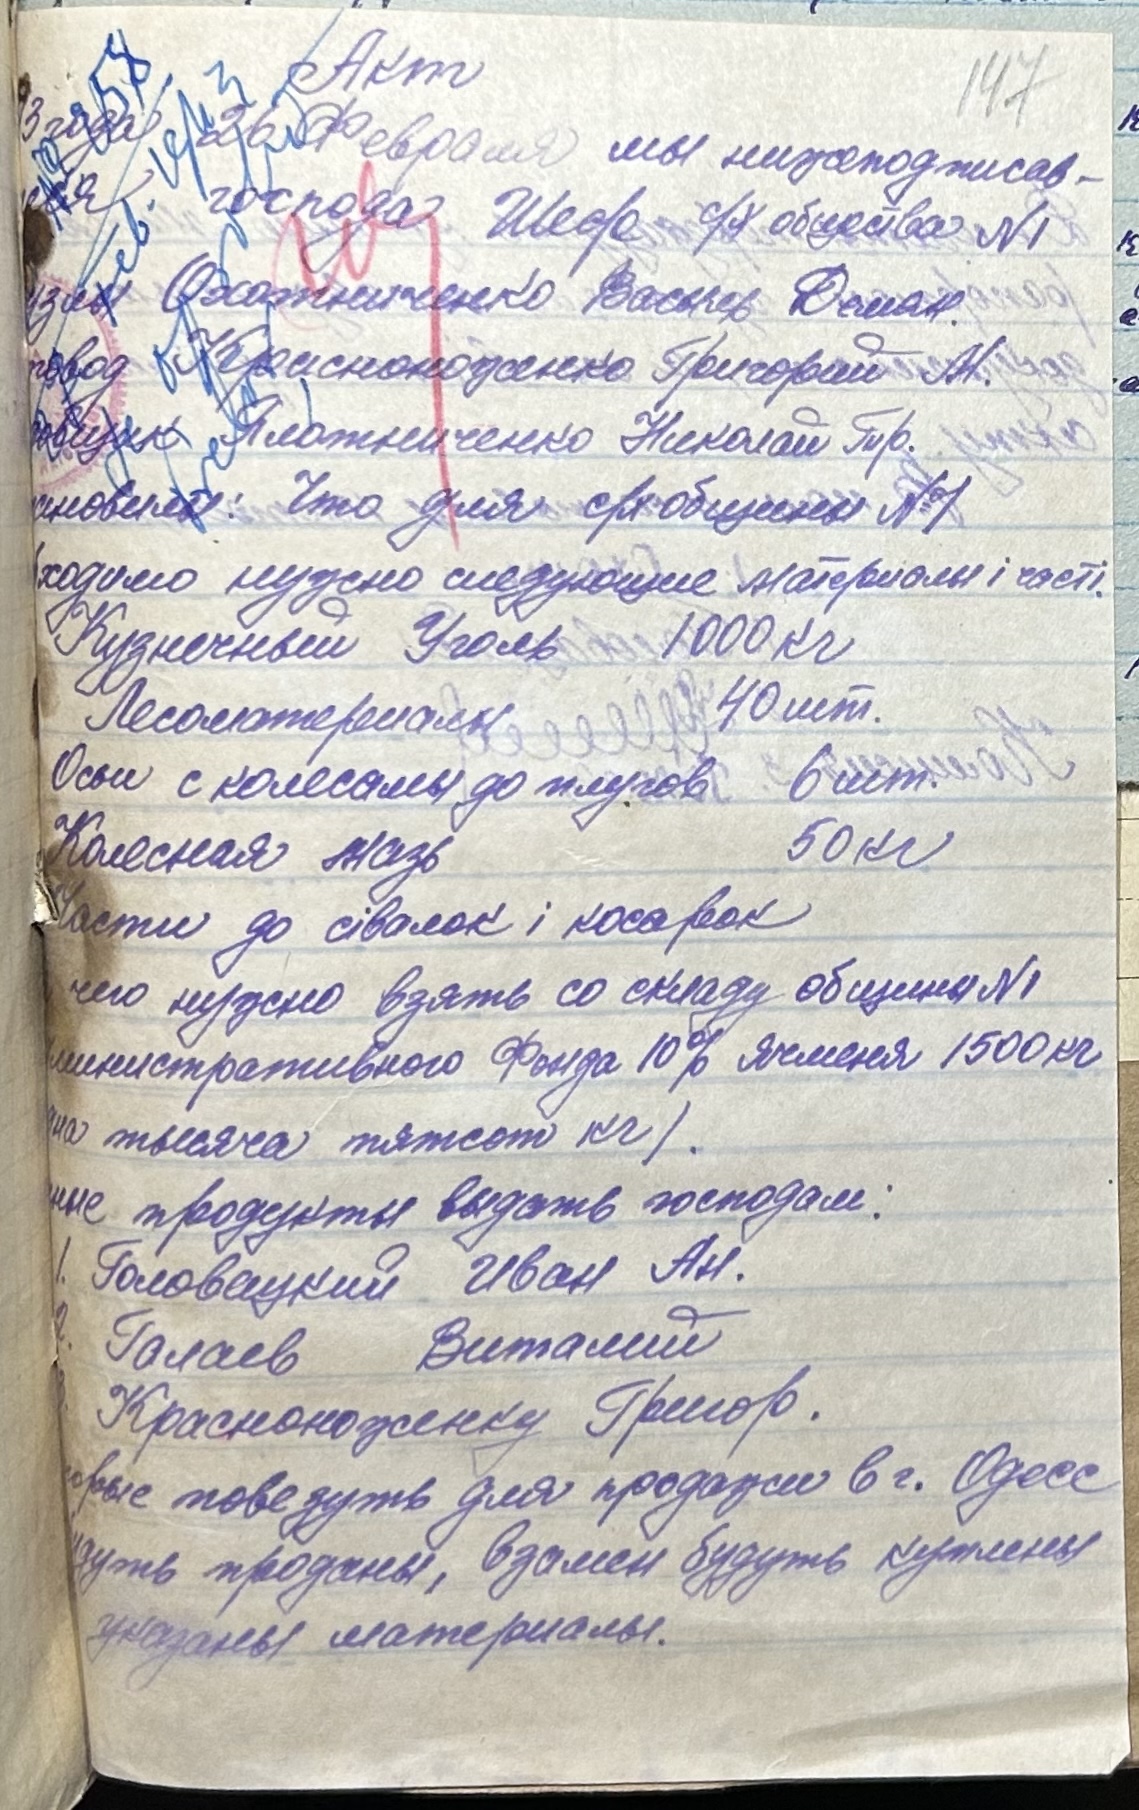 147
Акт
3 года 26 Февраля мы нижеподписав-
господа Шефа с/х общества №1
Охотниченко Васыль Деман.
вод Красноноженко Григорий Ан.
Плотниченко Николай Гр.
ановили: Что для с/х общины №1
ходимо нужно следующие материалы і часті.
Кузнечный Уголь 1000 кг
Лесоматериалы 40 шт.
Осьи с колесамы до плугов 6 шт.
Колесная мазь 50 кг
Части до сівалок і косарок
чего нужно взять со складу общины №1
министративного Фонда 10% ячменя 1500 кг
на тысяча пятсот кг/.
ные продукты выдать господам:
1. Головацкий Иван Ан.
2. Галаев Виталий
Красноноженку Григор.
орые повезуть для продажи в г. Одесс
дуть проданы, взамен будуть куплены
указаны материалы.